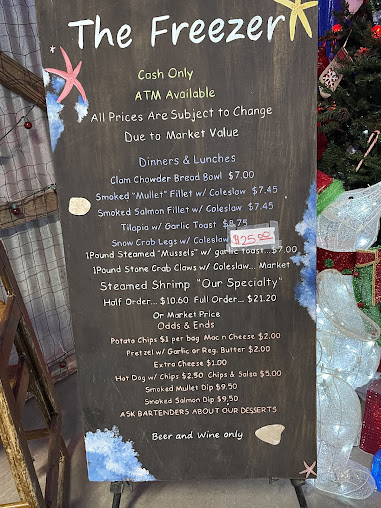 The Freezer
Cash Only
ATM Available
All Prices Are Subject to Change
Due to Market Value
Dinners & Lunches
Clam Chowder Bread Bowl $7.00
Smoked "Mullet" Fillet w/ Coleslaw $7.45
Smoked Salmon Fillet w/ Coleslaw $7.45
Tilapia w/ Garlic Toast $8.75
Snow Crab Legs w/ Coleslaw $25.00
1Pound Steamed "Mussels" w/ garlic toast...$7.00
1Pound Stone Crab Claws w/ Coleslaw... Market
Steamed Shrimp "Our Specialty"
Half Order... $10.60 Full Order... $21.20
Or Market Price
Odds & Ends
Potato Chips $1 per bag Mac n Cheese $2.00
Pretzel w/ Garlic or Reg. Butter $2.00
Extra Cheese $1.00
Hot Dog w/ Chips $2.50 Chips & Salsa $5.00
Smoked Mullet Dip $9.50
Smoked Salmon Dip $9.50
ASK BARTENDERS ABOUT OUR DESSERTS
Beer and Wine only